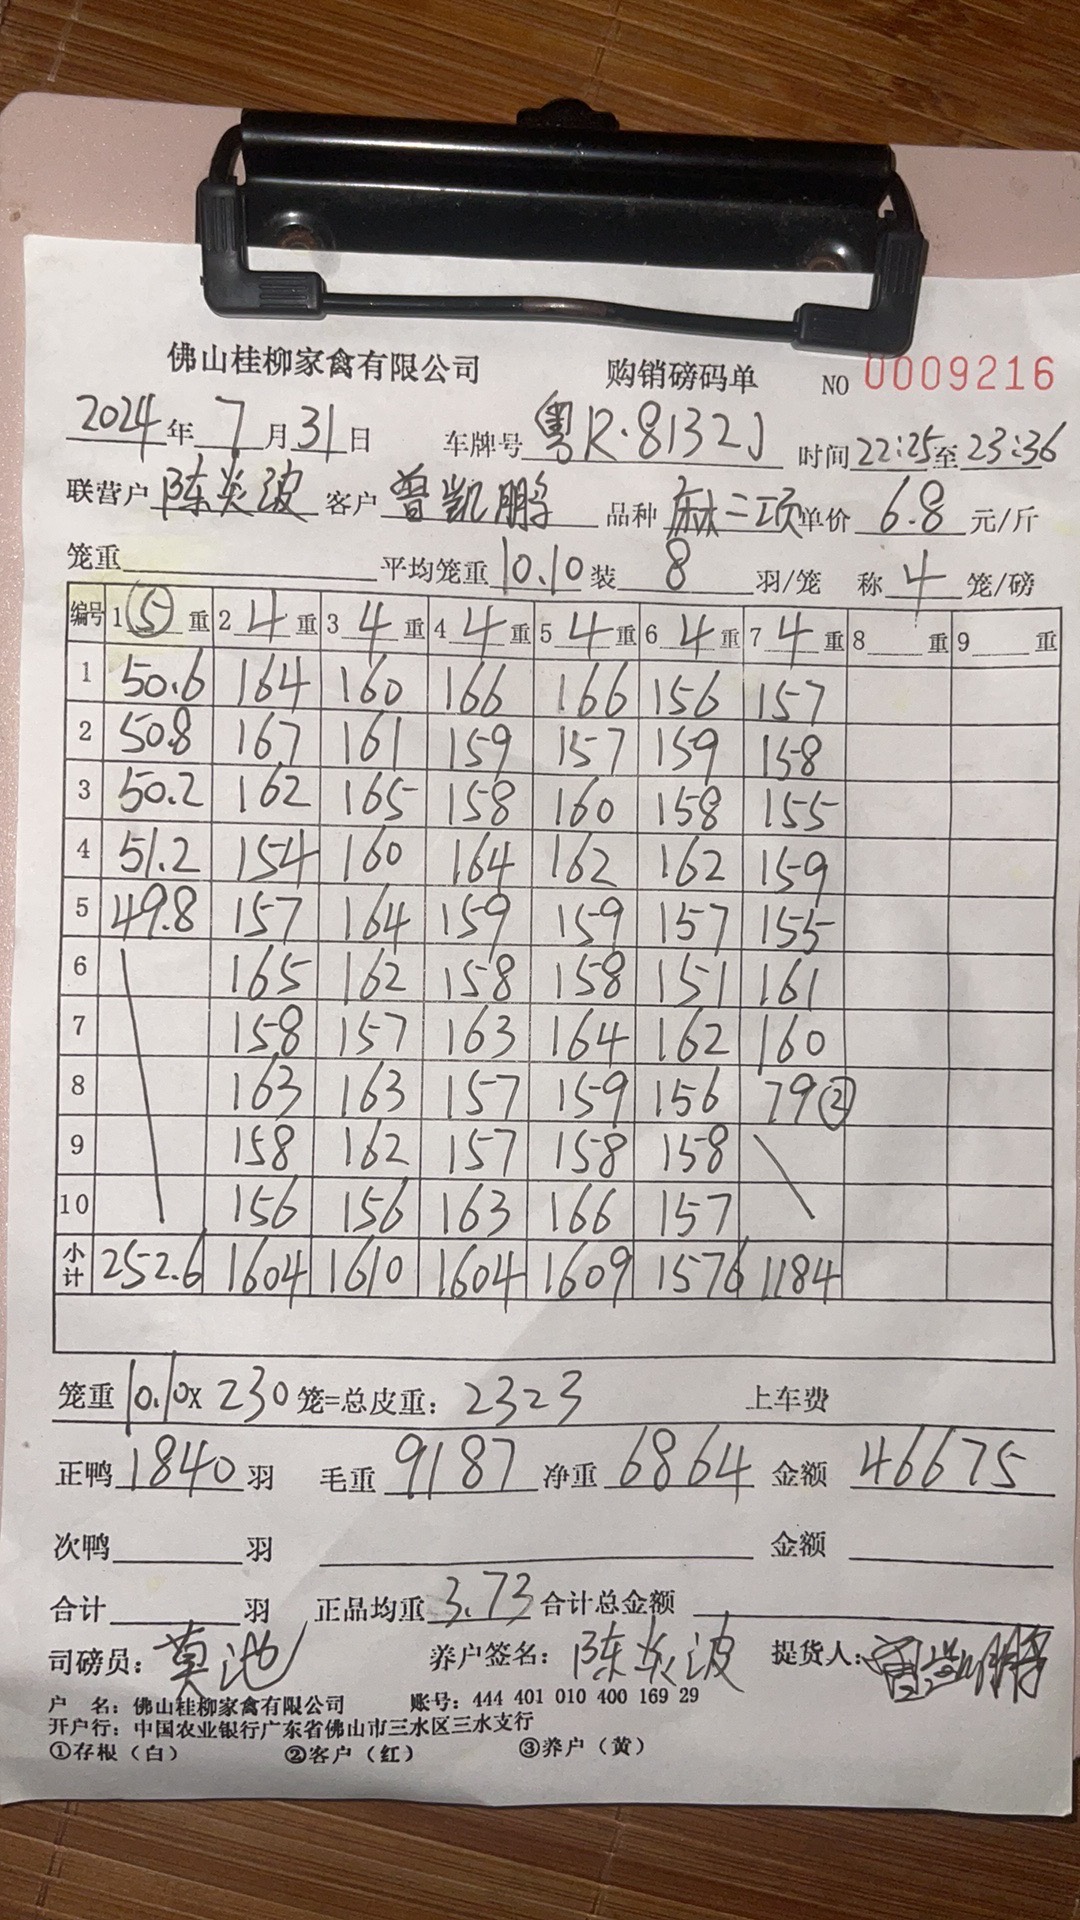 佛山桂柳家禽有限公司 购销磅码单 NO 0009216
2024年7月31日 车牌号粤R·8132J 时间22:25至23:36
联营户陈炎波 客户曾凯鹏 品种麻二项单价6.8元/斤
笼重 平均笼重10.10装8羽/笼 称4笼/磅
编号 1⑤重 2 4重 3 4重 4 4重 5 4重 6 4重 7 4重 8 重 9 重
1 50.6 164 160 166 166 156 157
2 50.8 167 161 159 157 159 158
3 50.2 162 165 158 160 158 155
4 51.2 154 160 164 162 162 159
5 49.8 157 164 159 159 157 155
6 165 162 158 158 151 161
7 158 157 163 164 162 160
8 163 163 157 159 156 79②
9 158 162 157 158 158
10 156 156 163 166 157
小计 252.6 1604 1610 1604 1609 1576 1184
笼重10.10x230笼=总皮重：2323 上车费
正鸭1840羽 毛重9187净重6864 金额46675
次鸭 羽 金额
合计 羽 正品均重3.73合计总金额
司磅员：莫池 养户签名：陈炎波 提货人：曾凯鹏
户 名：佛山桂柳家禽有限公司 账号：444 401 010 400 169 29
开户行：中国农业银行广东省佛山市三水区三水支行
①存根（白） ②客户（红） ③养户（黄）